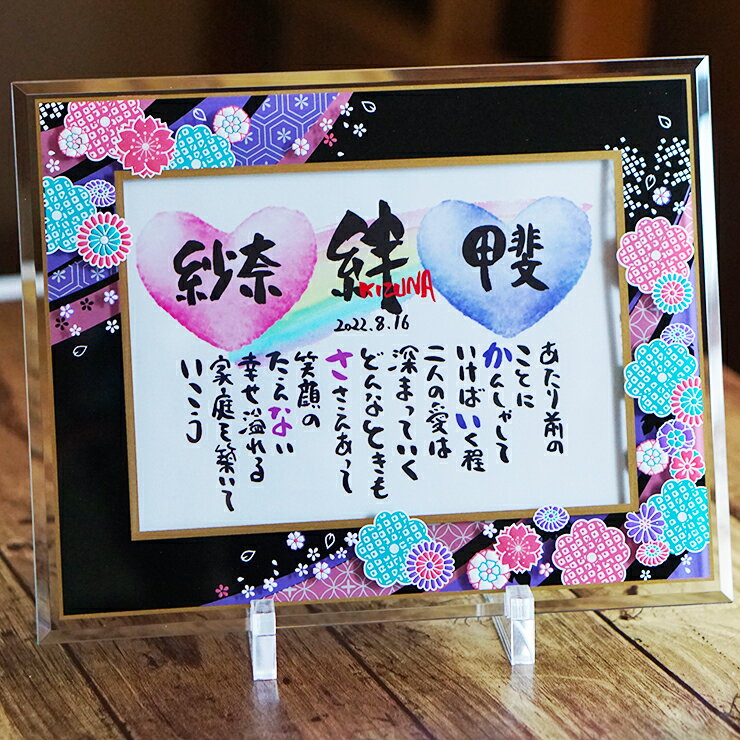 紗奈 絆 甲斐
KIZUNA
2022.8.16
あたり前の
ことに
かんしゃして
いけばいく程
二人の愛は
深まっていく
どんなときも
ささえあって
笑顔の
たえない
幸せ溢れる
家庭を築いて
いこう